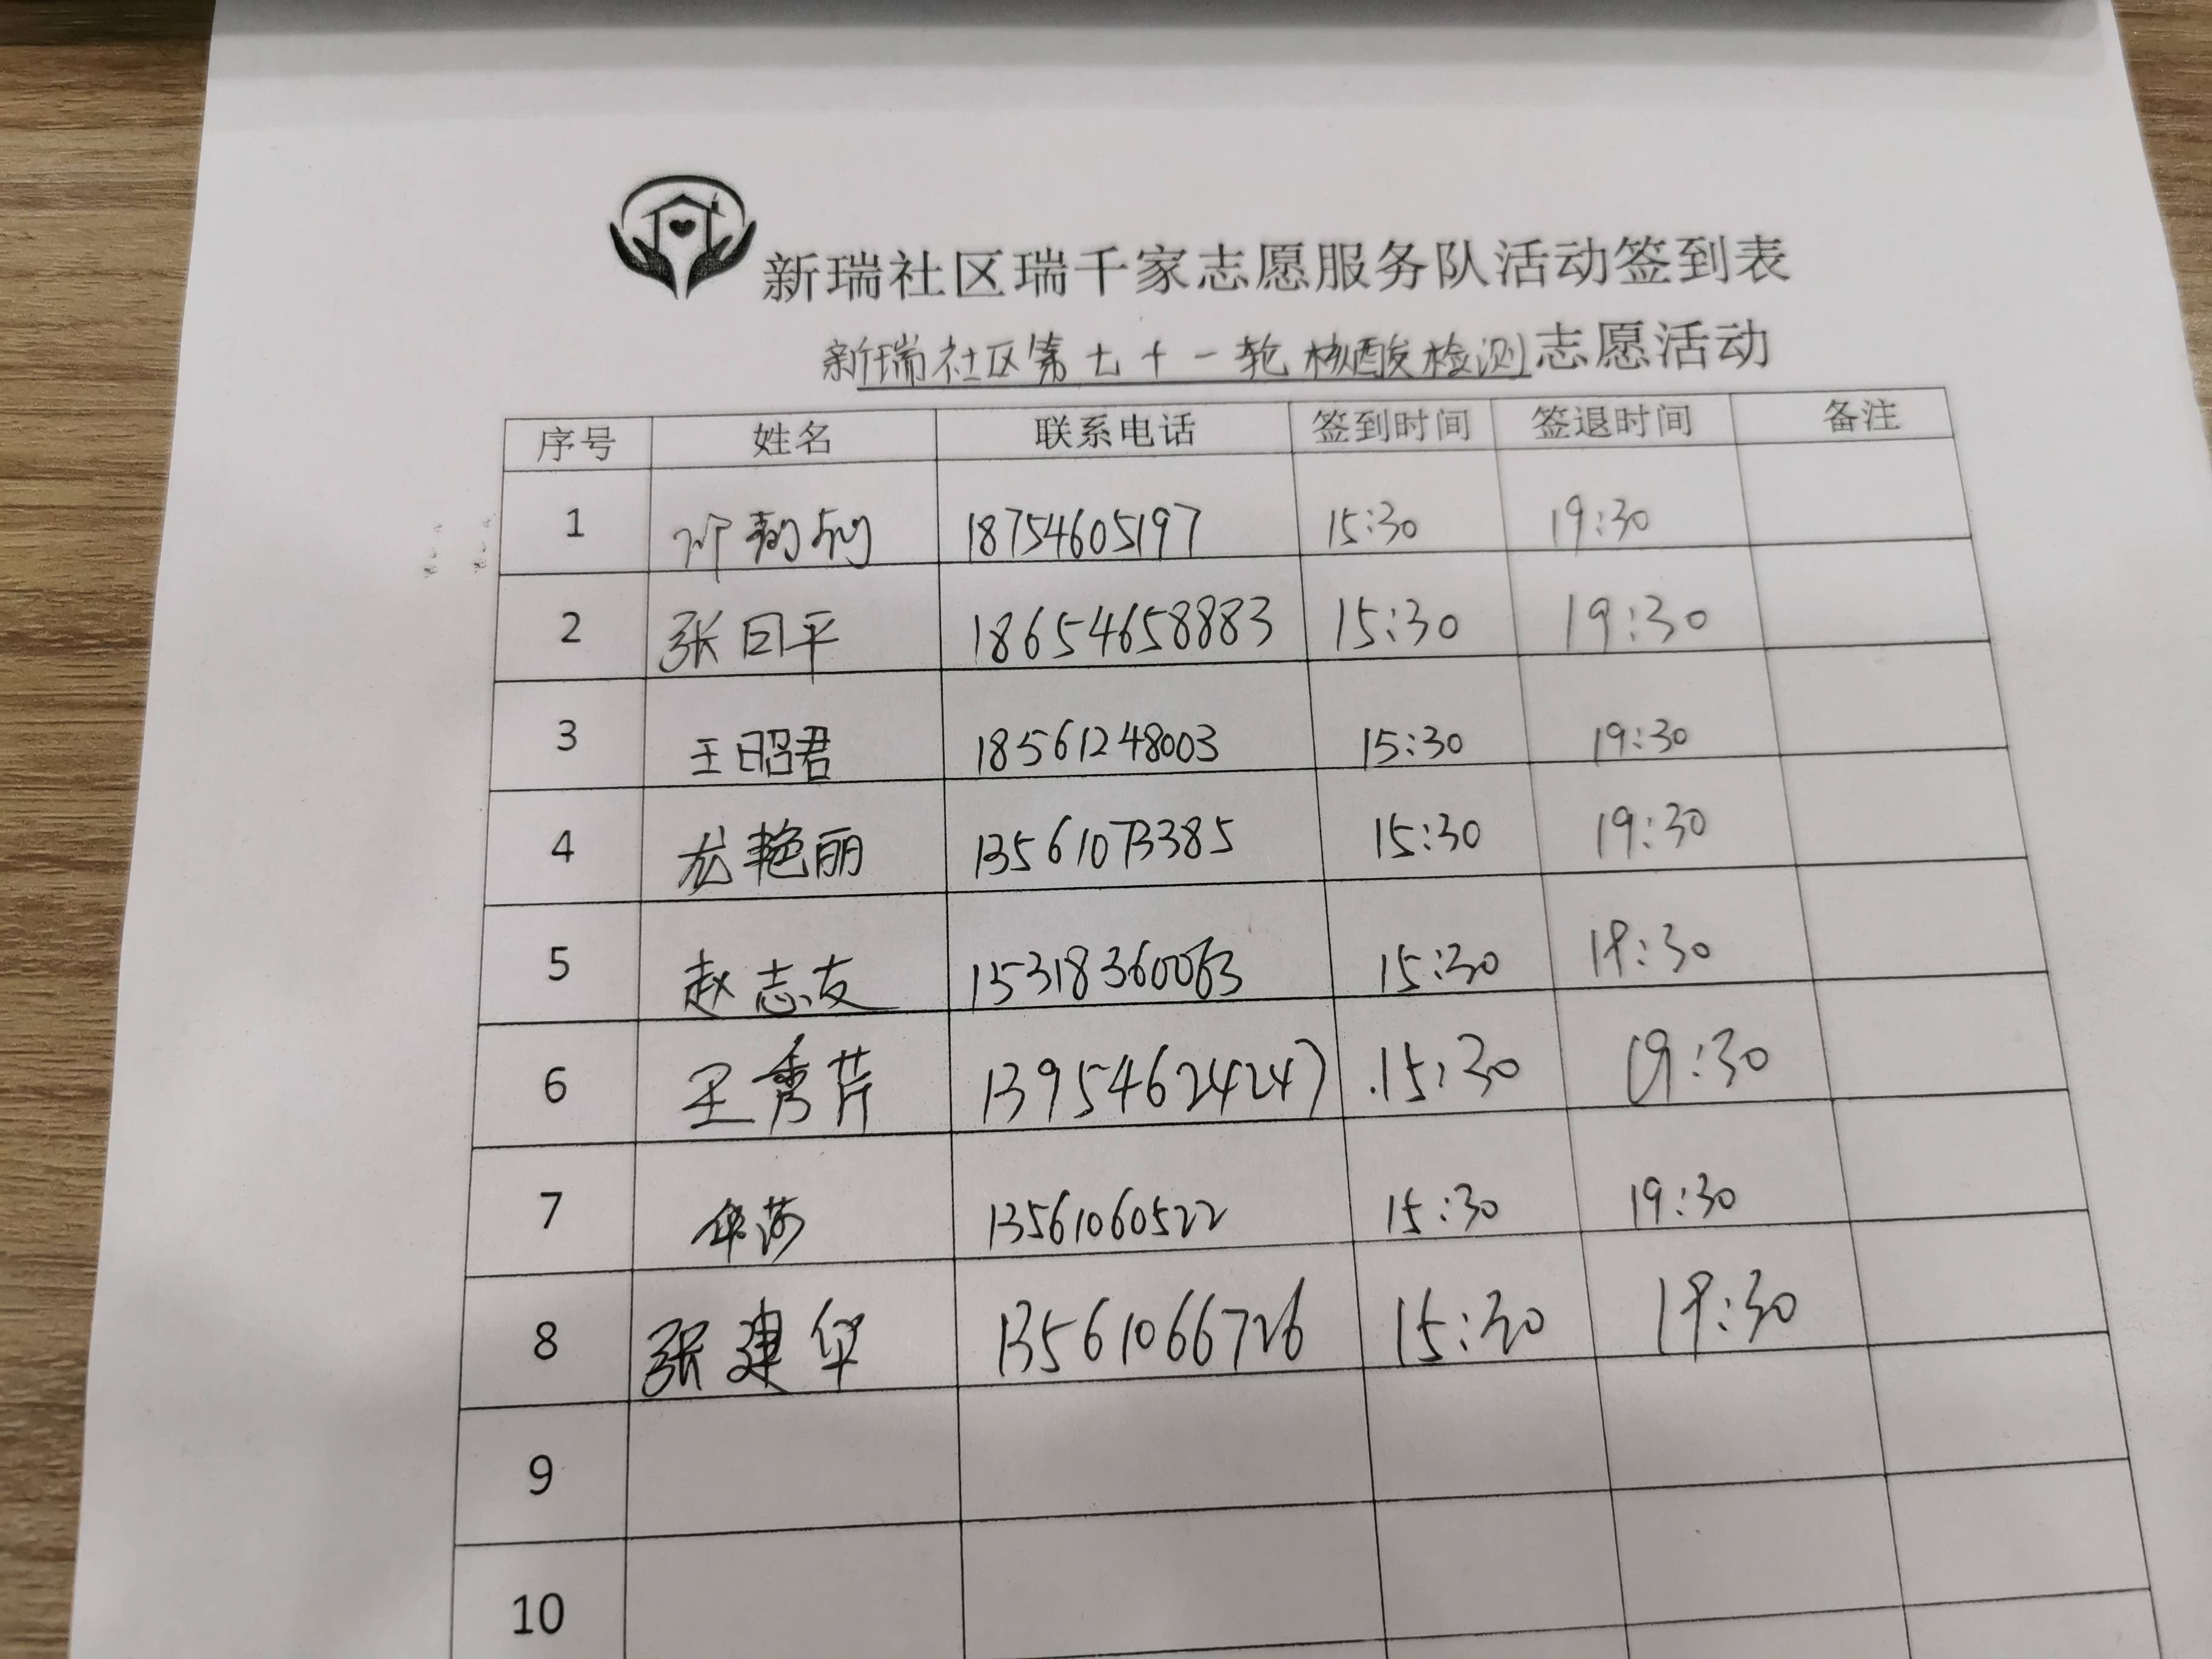 新瑞社区瑞千家志愿服务队活动签到表
新瑞社区第七十一轮核酸检测志愿活动
序号 姓名 联系电话 签到时间 签退时间 备注
1 18754605197 15:30 19:30
2 张日平 18654658883 15:30 19:30
3 王昭君 18561248003 15:30 19:30
4 尤艳丽 13561073385 15:30 19:30
5 赵志友 15318360063 15:30 19:30
6 王秀芹 13954624247 15:30 19:30
7 13561060522 15:30 19:30
8 张建华 13561066726 15:30 19:30
9
10